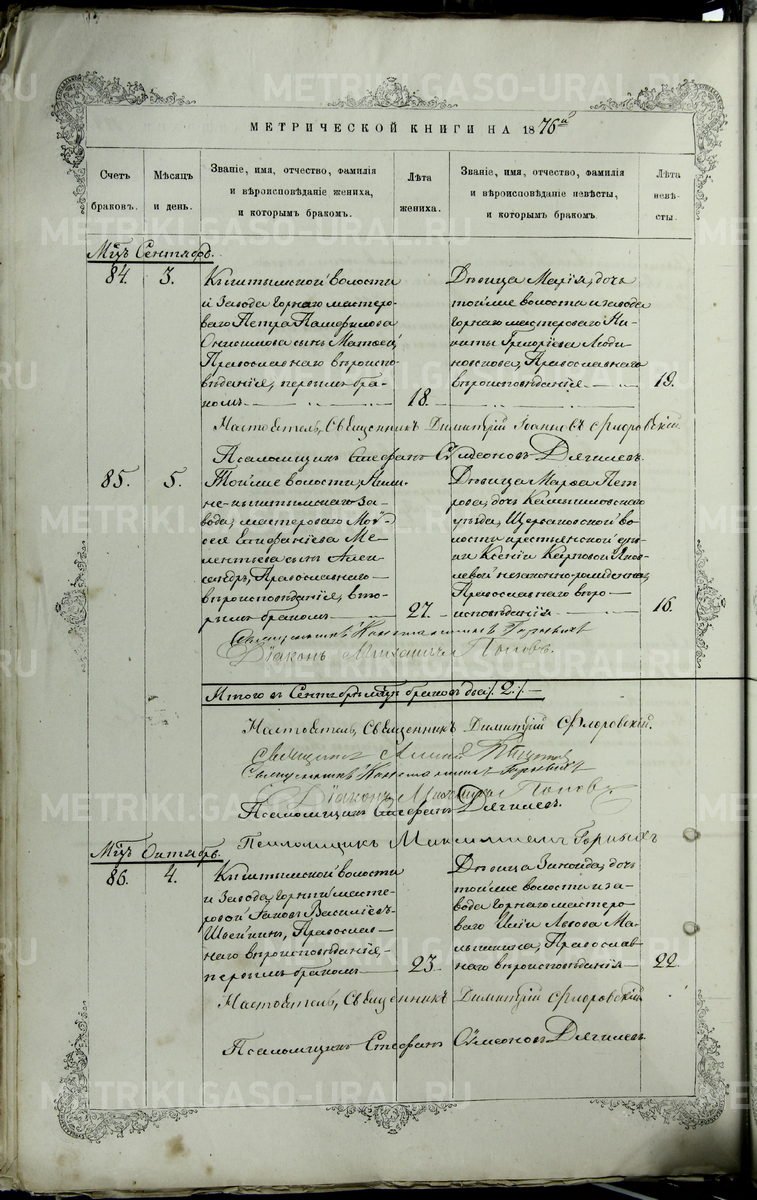 МЕТРИЧЕСКОЙ КНИГИ НА 1876й
Счетъ браковъ.
Мѣсяцъ и день.
Званіе, имя, отчество, фамилія и вѣроисповѣданіе жениха, и которымъ бракомъ.
Лѣта жениха.
Званіе, имя, отчество, фамилія и вѣроисповѣданіе невѣсты, и которымъ бракомъ.
Лѣта невѣсты.
Мцъ Сентябрь.
84.
3.
Кыштымской волости
и Завода горнаго мастеро-
ваго Петра Памфилова
Онисимова сынъ Матѳей,
Православнаго вѣроиспо-
вѣданія, первымъ бра-
комъ
18.
Дѣвица Марія, дочь
той же волости и завода
горнаго мастероваго Ни-
киты Григоріева
Православнаго
вѣроисповѣданія
19.
Настоятель, Священникъ Димитрій Іоанновъ Флоровскій.
Псаломщикъ Стефанъ Сѵмеоновъ Дягилевъ.
85.
5.
Той же волости, Ниж-
не-кыштымскаго За-
вода, мастероваго Мой-
сея Епифаніева Ме-
лентьева сынъ Алек-
сандръ, Православнаго
вѣроисповѣданія, вто-
рымъ бракомъ
27.
Дѣвица Марѳа Пет-
рова, дочь Камышловскаго
уѣзда, Щербаковской во-
лости крестьянской
Ксеніи Карповой Яков-
левой незаконно-рожденная,
Православнаго вѣро-
исповѣданія
16.
Священникъ Константинъ Горныхъ
Діаконъ Михаилъ Поповъ.
Итого въ Сентябрѣ мцѣ браковъ два /. 2. /.
Настоятель, Священникъ Димитрій Флоровскій.
Священникъ
Священникъ Константинъ Горныхъ
Діаконъ Михаилъ Поповъ
Псаломщикъ Стефанъ Дягилевъ.
Псаломщикъ Максимиліанъ Горныхъ
Мцъ Октябрь.
86.
4.
Кыштымской волости
и Завода, горный масте-
ровой Іаковъ Василіевъ
Швейкинъ, Православ-
наго вѣроисповѣданія,
первымъ бракомъ
23.
Дѣвица Зиновія, дочь
той же волости и за-
вода горнаго мастеро-
ваго Иліи Львова Ма-
лышкина, Православ-
наго вѣроисповѣданія
22.
Настоятель, Священникъ Димитрій Флоровскій
Псаломщикъ Стефанъ Сѵмеоновъ Дягилевъ.
METRIKI.GASO-URAL.RU